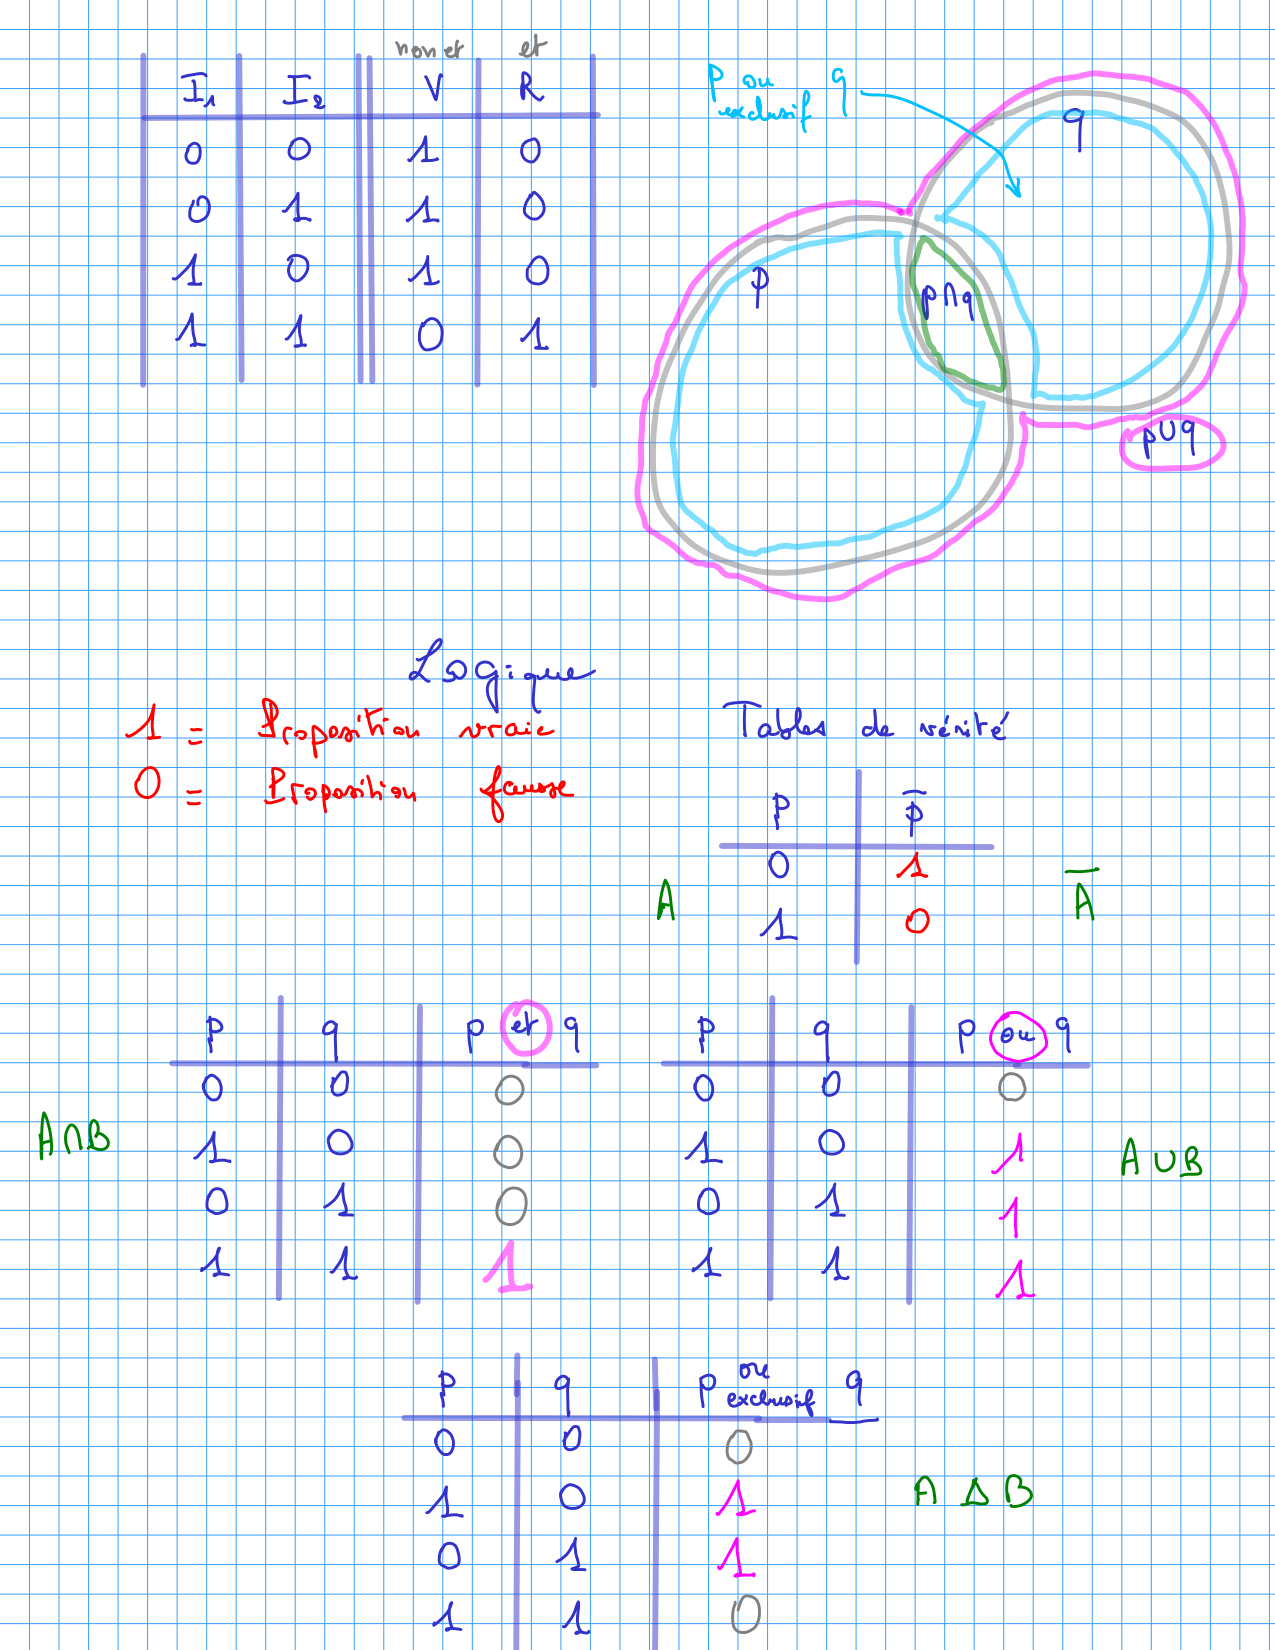 non et et
I₁ I₂ V R
0 0 1 0
0 1 1 0
1 0 1 0
1 1 0 1
p ou exclusif q
q
p
p∩q
p∪q
Logique
1 = Proposition vraie
0 = Proposition fausse
Tables de vérité
p p̅
0 1
1 0
A A̅
p q p et q
0 0 0
1 0 0
0 1 0
1 1 1
A∩B
p q p ou q
0 0 0
1 0 1
0 1 1
1 1 1
A∪B
p q p ou exclusif q
0 0 0
1 0 1
0 1 1
1 1 0
A Δ B